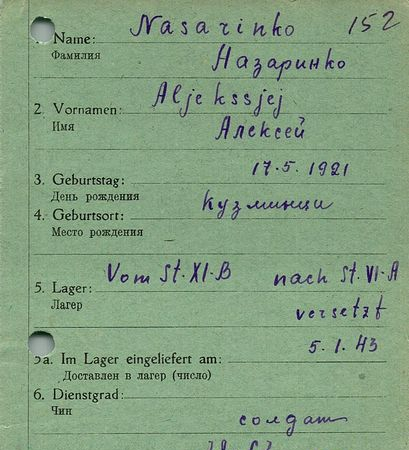 152
1. Name: Nasarinko
Фамилия Назаринко
2. Vornamen: Aljekssjej
Имя Алексей
3. Geburtstag: 17.5.1921
День рождения
4. Geburtsort: Кузминци
Место рождения
5. Lager: Vom St. XI-B nach St. VI-A
Лагер versetzt
5a. Im Lager eingeliefert am: 5.1.43
Доставлен в лагер (число)
6. Dienstgrad:
Чин солдат